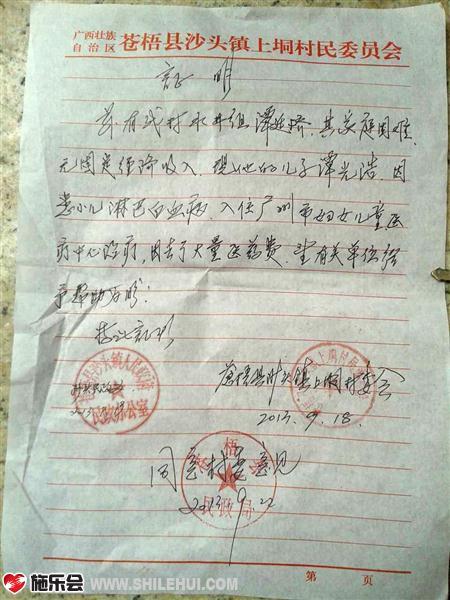 广西壮族
自治区 苍梧县沙头镇上垌村民委员会
证明
兹有我村水井组谭延,其家庭困难,
无固定经济收入,现他的儿子谭光浩,因
患小儿淋巴白血病,入住广州市妇女儿童医
疗中心治疗,用去了大量医药费,望有关单位给
予帮助为盼!
特此证明
苍梧县沙头镇上垌村委会
2013.9.18.
苍梧县沙头镇人民政府
民政办公室
同意村委意见
2013.9.22
苍梧县
民政局
第 页
施乐会 WWW.SHILEHUI.COM